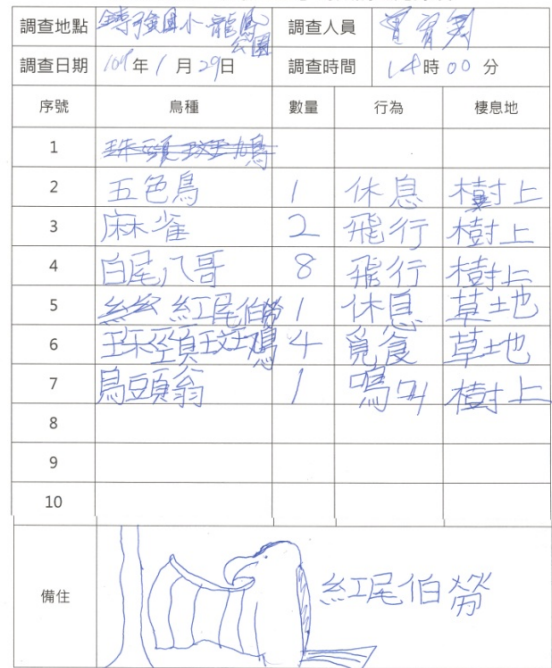 調查地點 鑄強國小-龍鳳公園 調查人員
調查日期 109年1月29日 調查時間 14時00分
序號 鳥種 數量 行為 棲息地
1 珠頭斑鳩
2 五色鳥 1 休息 樹上
3 麻雀 2 飛行 樹上
4 白尾八哥 8 飛行 樹上
5 紅尾伯勞 1 休息 草地
6 珠頸斑鳩 4 覓食 草地
7 烏頭翁 1 鳴叫 樹上
8
9
10
備住 紅尾伯勞